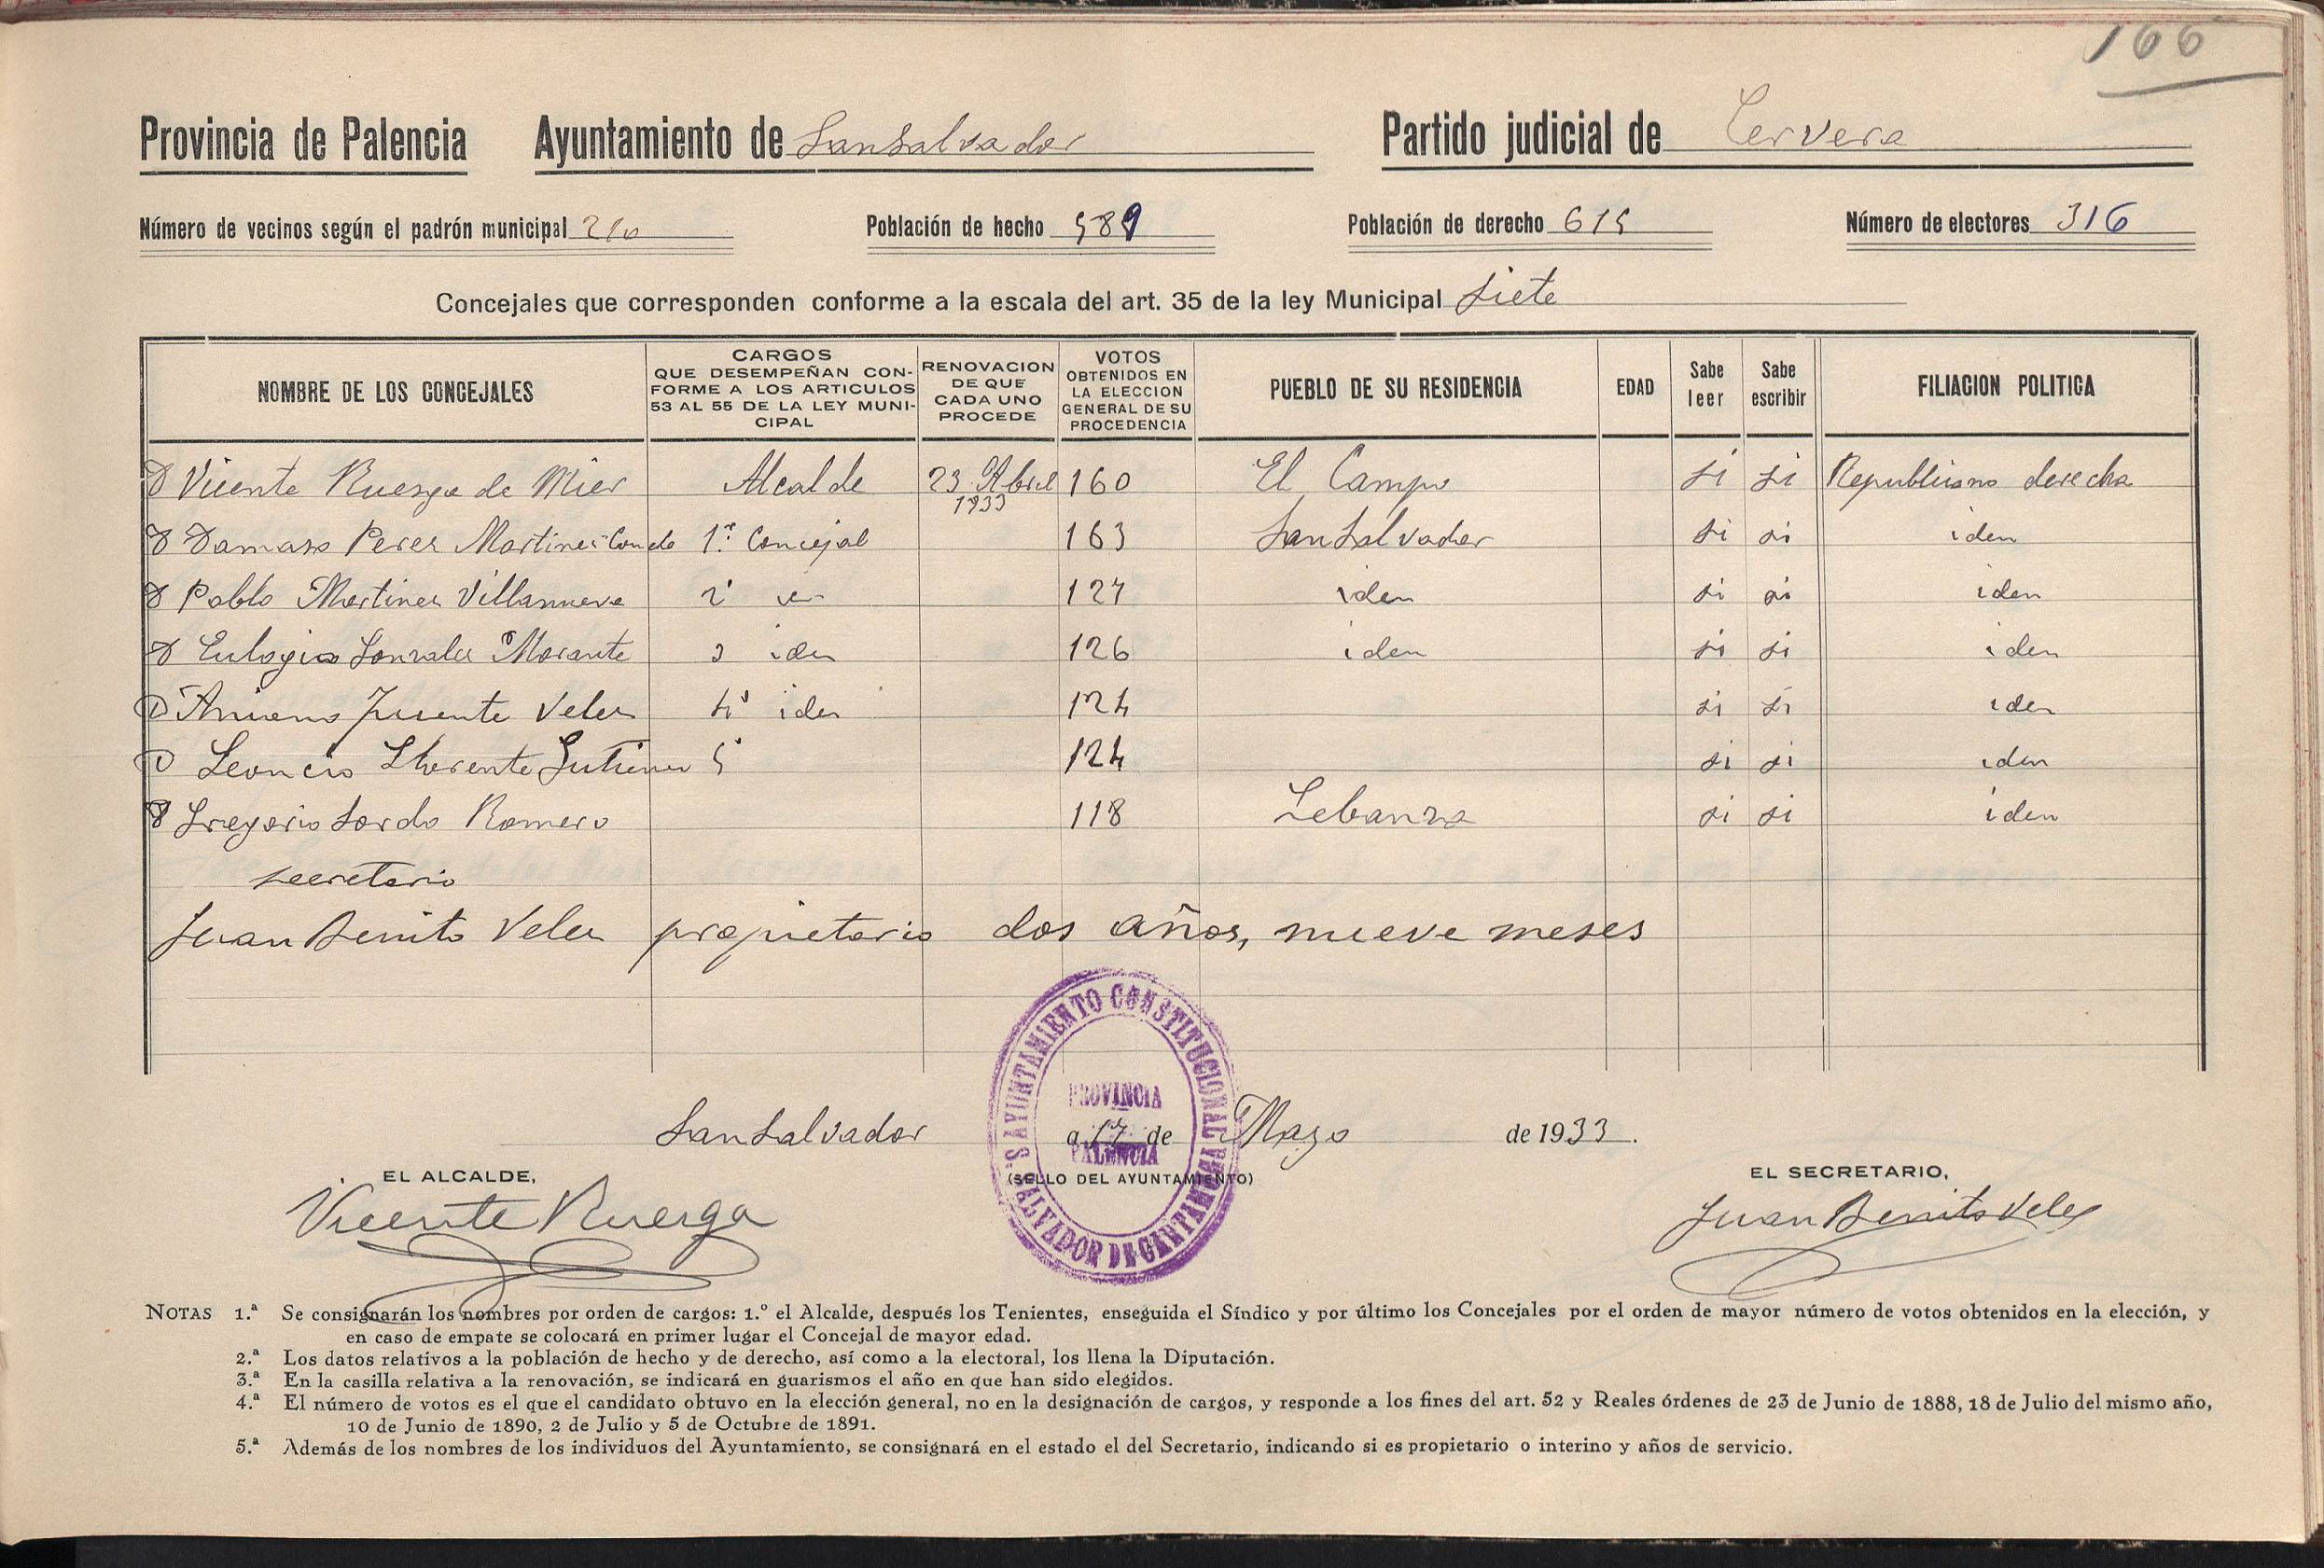 166
Provincia de Palencia Ayuntamiento de Sansalvador Partido judicial de Cervera
Número de vecinos según el padrón municipal 210 Población de hecho 589 Población de derecho 615 Número de electores 316
Concejales que corresponden conforme a la escala del art. 35 de la ley Municipal siete
NOMBRE DE LOS CONCEJALES CARGOS QUE DESEMPEÑAN CONFORME A LOS ARTICULOS 53 AL 55 DE LA LEY MUNICIPAL RENOVACION DE QUE CADA UNO PROCEDE VOTOS OBTENIDOS EN LA ELECCION GENERAL DE SU PROCEDENCIA PUEBLO DE SU RESIDENCIA EDAD Sabe leer Sabe escribir FILIACION POLITICA
D Vicente Ruesga de Mier Alcalde 23 Abril 1933 160 El Campo si si Republicano derecha
D Damaso Perez Martinez Conde 1º Concejal 163 San Salvador si si iden
D Pablo Martinez Villanueva 2º 127 iden si si iden
D Eulogio Gonzalez Morante 3 iden 126 iden si si iden
D Aniano Fuente Velez 4º iden 124 si si iden
D Leoncio Llorente Gutierrez 5º 124 si si iden
D Gregorio Sordo Romero 118 Lebanza si si iden
secretario
Juan Benito Velez propietario dos años, nueve meses
San Salvador a 17 de Mayo de 1933.
AYUNTAMIENTO CONSTITUCIONAL S. SALVADOR DE CANTAMUGA
PROVINCIA
PALENCIA
EL ALCALDE, (SELLO DEL AYUNTAMIENTO) EL SECRETARIO,
Vicente Ruesga Juan Benito Velez
NOTAS 1.ª Se consignarán los nombres por orden de cargos: 1.º el Alcalde, después los Tenientes, enseguida el Síndico y por último los Concejales por el orden de mayor número de votos obtenidos en la elección, y
en caso de empate se colocará en primer lugar el Concejal de mayor edad.
2.ª Los datos relativos a la población de hecho y de derecho, así como a la electoral, los llena la Diputación.
3.ª En la casilla relativa a la renovación, se indicará en guarismos el año en que han sido elegidos.
4.ª El número de votos es el que el candidato obtuvo en la elección general, no en la designación de cargos, y responde a los fines del art. 52 y Reales órdenes de 23 de Junio de 1888, 18 de Julio del mismo año,
10 de Junio de 1890, 2 de Julio y 5 de Octubre de 1891.
5.ª Además de los nombres de los individuos del Ayuntamiento, se consignará en el estado el del Secretario, indicando si es propietario o interino y años de servicio.